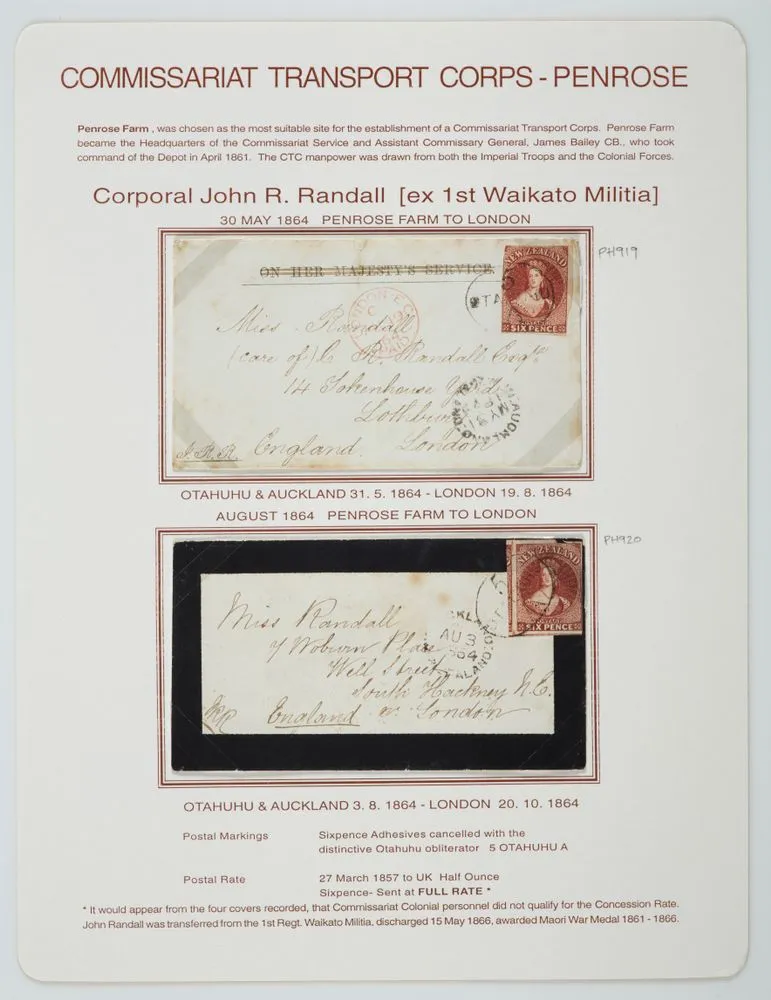 COMMISSARIAT TRANSPORT CORPS - PENROSE
Penrose Farm , was chosen as the most suitable site for the establishment of a Commissariat Transport Corps. Penrose Farm
became the Headquarters of the Commissariat Service and Assistant Commissary General, James Bailey CB., who took
command of the Depot in April 1861. The CTC manpower was drawn from both the Imperial Troops and the Colonial Forces.
Corporal John R. Randall [ex 1st Waikato Militia]
30 MAY 1864 PENROSE FARM TO LONDON
PH919
ON HER MAJESTY'S SERVICE
NEW ZEALAND
POSTAGE
SIX PENCE
OTA
LONDON E.C
Miss Randall
(care of) C. R. Randall Esqre
14 Tokenhouse Yard
Lothbury
AUCKLAND
MY 31
J.R.R. England. London
OTAHUHU & AUCKLAND 31. 5. 1864 - LONDON 19. 8. 1864
AUGUST 1864 PENROSE FARM TO LONDON
PH920
NEW ZEALAND
POSTAGE
SIX PENCE
5
AUCKLAND
AU 3
1864
ZEALAND
Miss Randall
7 Woburn Place
Well Street
South Hackney N.E.
JRR England London
OTAHUHU & AUCKLAND 3. 8. 1864 - LONDON 20. 10. 1864
Postal Markings Sixpence Adhesives cancelled with the
distinctive Otahuhu obliterator 5 OTAHUHU A
Postal Rate 27 March 1857 to UK Half Ounce
Sixpence- Sent at FULL RATE *
* It would appear from the four covers recorded, that Commissariat Colonial personnel did not qualify for the Concession Rate.
John Randall was transferred from the 1st Regt. Waikato Militia, discharged 15 May 1866, awarded Maori War Medal 1861 - 1866.